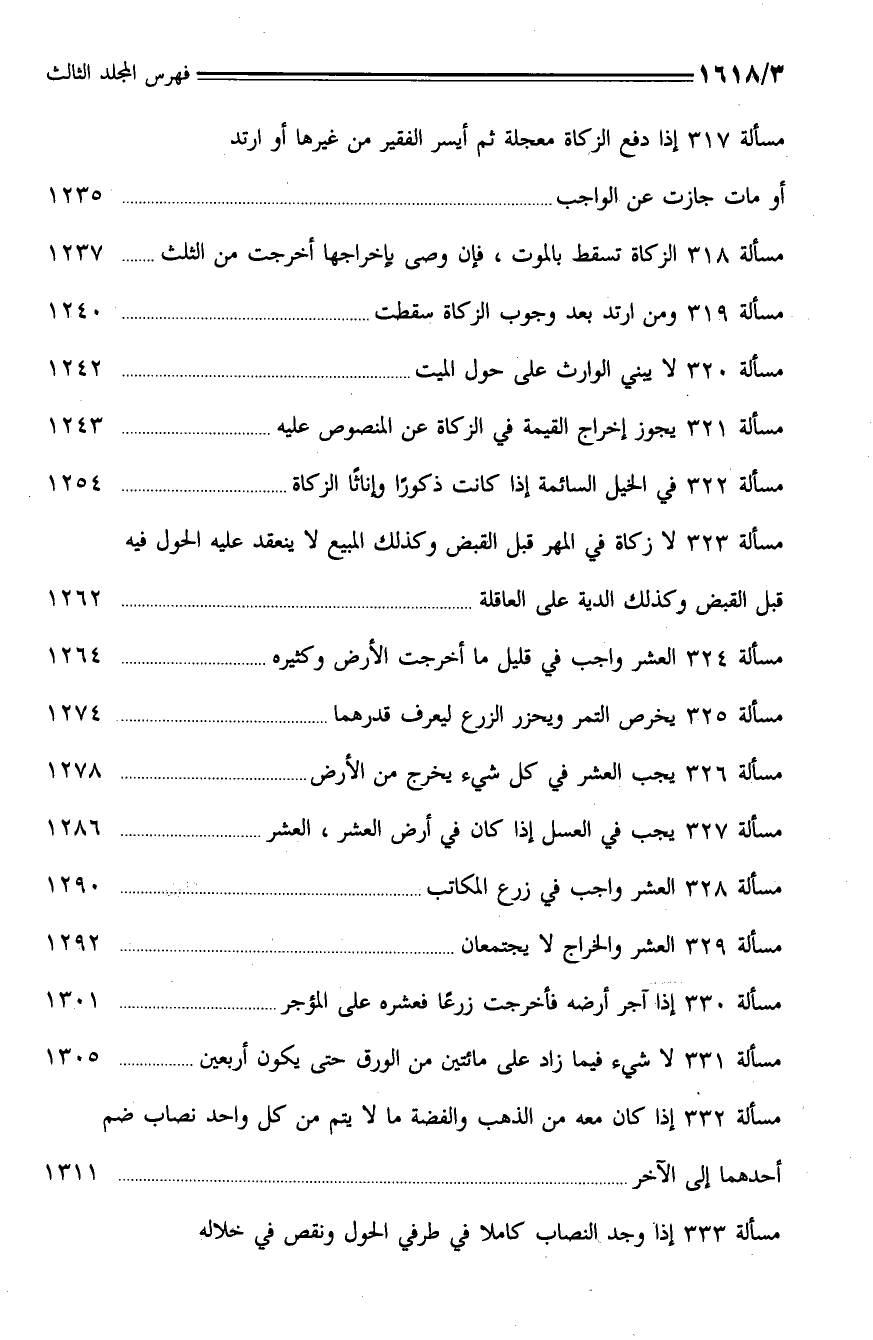 ١٦١٨/٣ فهرس المجلد الثالث
مسألة ٣١٧ إذا دفع الزكاة معجلة ثم أيسر الفقير من غيرها أو ارتد
أو مات جازت عن الواجب ١٢٣٥
مسألة ٣١٨ الزكاة تسقط بالموت ، فإن وصى بإخراجها أخرجت من الثلث ١٢٣٧
مسألة ٣١٩ ومن ارتد بعد وجوب الزكاة سقطت ١٢٤٠
مسألة ٣٢٠ لا يبني الوارث على حول الميت ١٢٤٢
مسألة ٣٢١ يجوز إخراج القيمة في الزكاة عن المنصوص عليه ١٢٤٣
مسألة ٣٢٢ في الخيل السائمة إذا كانت ذكورًا وإناثًا الزكاة ١٢٥٤
مسألة ٣٢٣ لا زكاة في المهر قبل القبض وكذلك المبيع لا ينعقد عليه الحول فيه
قبل القبض وكذلك الدية على العاقلة ١٢٦٢
مسألة ٣٢٤ العشر واجب في قليل ما أخرجت الأرض وكثيره ١٢٦٤
مسألة ٣٢٥ يخرص التمر ويحزر الزرع ليعرف قدرهما ١٢٧٤
مسألة ٣٢٦ يجب العشر في كل شيء يخرج من الأرض ١٢٧٨
مسألة ٣٢٧ يجب في العسل إذا كان في أرض العشر ، العشر ١٢٨٦
مسألة ٣٢٨ العشر واجب في زرع المكاتب ١٢٩٠
مسألة ٣٢٩ العشر والخراج لا يجتمعان ١٢٩٢
مسألة ٣٣٠ إذا آجر أرضه فأخرجت زرعًا فعشره على المؤجر ١٣٠١
مسألة ٣٣١ لا شيء فيما زاد على مائتين من الورق حتى يكون أربعين ١٣٠٥
مسألة ٣٣٢ إذا كان معه من الذهب والفضة ما لا يتم من كل واحد نصاب ضم
أحدهما إلى الآخر ١٣١١
مسألة ٣٣٣ إذا وجد النصاب كاملا في طرفي الحول ونقص في خلاله